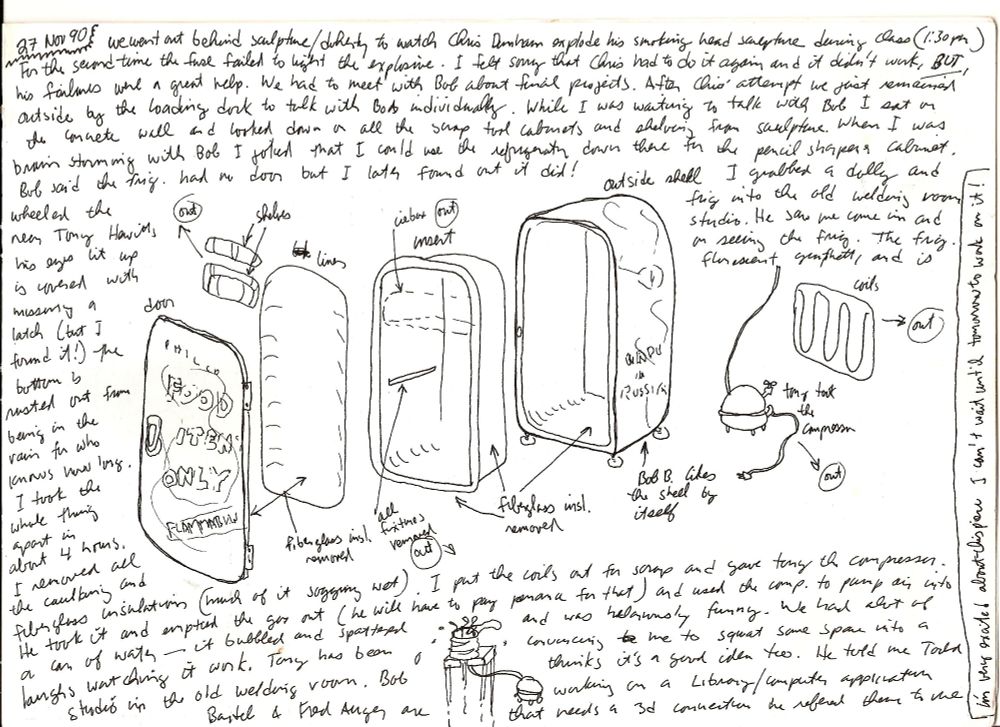 27 Nov 90 we went out behind sculpture/doherty to watch Chris Denham explode his smoking head sculpture during class (1:30 pm)
For the second time the fuse failed to light the explosive. I felt sorry that Chris had to do it again and it didn't work, BUT,
his failures were a great help. We had to meet with Bob about final projects. After Chris' attempt we just remained
outside by the loading dock to talk with Bob individually. While I was waiting to talk with Bob I sat on
the concrete wall and looked down on all the scrap tool cabinets and shelving from sculpture. When I was
brain storming with Bob I joked that I could use the refrigerator down there for the pencil sharpener cabinet.
Bob said the frig. had no door but I later found out it did!
I grabbed a dolly and
wheeled the
frig into the old welding room
near Tony
studio. He saw me come in and
his eyes lit up
on seeing the frig. The frig.
is covered with
florescent graffetti, and is
missing a
latch (but I
found it!) The
bottom is
rusted out from
being in the
rain for who
knows how long.
I took the
whole thing
apart in
about 4 hours.
I removed all
the caulking and
fiberglass insulation (much of it sogging wet). I put the coils out for scrap and gave tony the compressor.
He took it and emptied the gas out (he will have to pay penance for that) and used the comp. to pump air into
a can of water — it bubbled and spattered
and was hilariously funny. We had alot of
laughs watching it work. Tony has been
convincing me to squat some space into a
studio in the old welding room. Bob
thinks it's a good idea too. He told me Todd
Bartel & Fred
are
working on a Library/computer application
that needs a 3d connection he referred them to me
out
shelves
liner
icebox out
insert
outside shell
coils
out
door
PHILCO
FOOD
ITEM
ONLY
FLAMMABLE
in
RUSSIA
tony took
the
compressor
out
Bob B. likes
the shell by
itself
fiberglass insl.
removed
all
fixtures
removed
out
fiberglass insl.
removed
im very excited about this piece I can't wait until tomorrow to work on it!